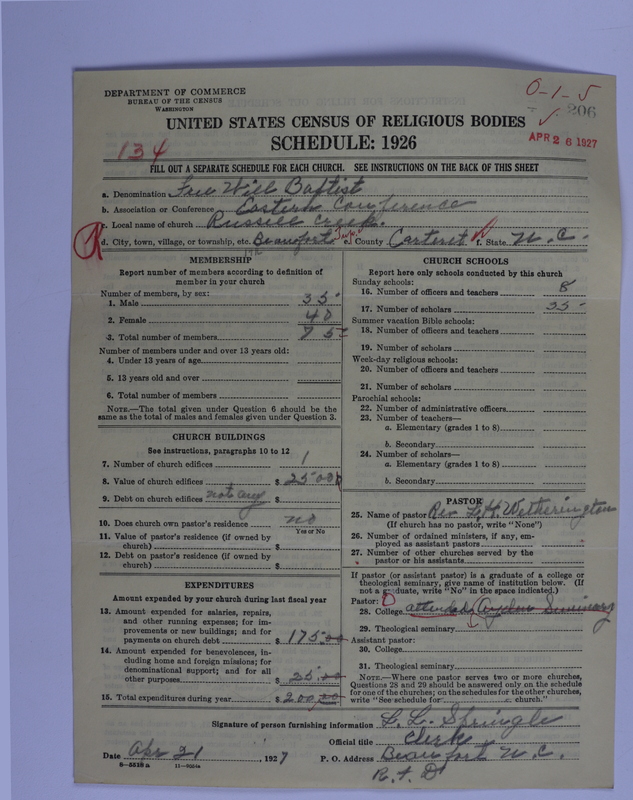 DEPARTMENT OF COMMERCE
BUREAU OF THE CENSUS
WASHINGTON
0-1-5
206
UNITED STATES CENSUS OF RELIGIOUS BODIES
SCHEDULE: 1926
APR 26 1927
134
FILL OUT A SEPARATE SCHEDULE FOR EACH CHURCH. SEE INSTRUCTIONS ON THE BACK OF THIS SHEET
a. Denomination Free Will Baptist
b. Association or Conference Eastern Conference
c. Local name of church Russell Creek.
d. City, town, village, or township, etc. Beaufort e. County Carteret f. State N.C.
MEMBERSHIP
Report number of members according to definition of
member in your church
Number of members, by sex:
1. Male 35
2. Female 40
3. Total number of members 75
Number of members under and over 13 years old:
4. Under 13 years of age
5. 13 years old and over
6. Total number of members
NOTE.—The total given under Question 6 should be the
same as the total of males and females given under Question 3.
CHURCH BUILDINGS
See instructions, paragraphs 10 to 12
7. Number of church edifices 1
8. Value of church edifices $ 2500
9. Debt on church edifices not any $
10. Does church own pastor's residence no
Yes or No
11. Value of pastor's residence (if owned by
church) $
12. Debt on pastor's residence (if owned by
church) $
EXPENDITURES
Amount expended by your church during last fiscal year
13. Amount expended for salaries, repairs,
and other running expenses; for im-
provements or new buildings; and for
payments on church debt $ 175.00
14. Amount expended for benevolences, in-
cluding home and foreign missions; for
denominational support; and for all
other purposes $ 25.00
15. Total expenditures during year $ 200.00
CHURCH SCHOOLS
Report here only schools conducted by this church
Sunday schools:
16. Number of officers and teachers 8
17. Number of scholars 35
Summer vacation Bible schools:
18. Number of officers and teachers
19. Number of scholars
Week-day religious schools:
20. Number of officers and teachers
21. Number of scholars
Parochial schools:
22. Number of administrative officers
23. Number of teachers—
a. Elementary (grades 1 to 8)
b. Secondary
24. Number of scholars—
a. Elementary (grades 1 to 8)
b. Secondary
PASTOR
25. Name of pastor Rev. L. H. Wetherington
(If church has no pastor, write "None")
26. Number of ordained ministers, if any, em-
ployed as assistant pastors
27. Number of other churches served by the
pastor or his assistants
If pastor (or assistant pastor) is a graduate of a college or
theological seminary, give name of institution below. (If
not a graduate, write "No" in the space indicated.)
Pastor: 0
28. College attended Ayden Seminary
29. Theological seminary
Assistant pastor:
30. College
31. Theological seminary
NOTE.—Where one pastor serves two or more churches,
Questions 28 and 29 should be answered only on the schedule
for one of the churches; on the schedules for the other churches,
write "See schedule for church."
Signature of person furnishing information L. L. Springle
Official title Clerk
Date Apr 21, 1927 P. O. Address Beaufort N.C.
R.F.D
8—5510 a 11—9024a